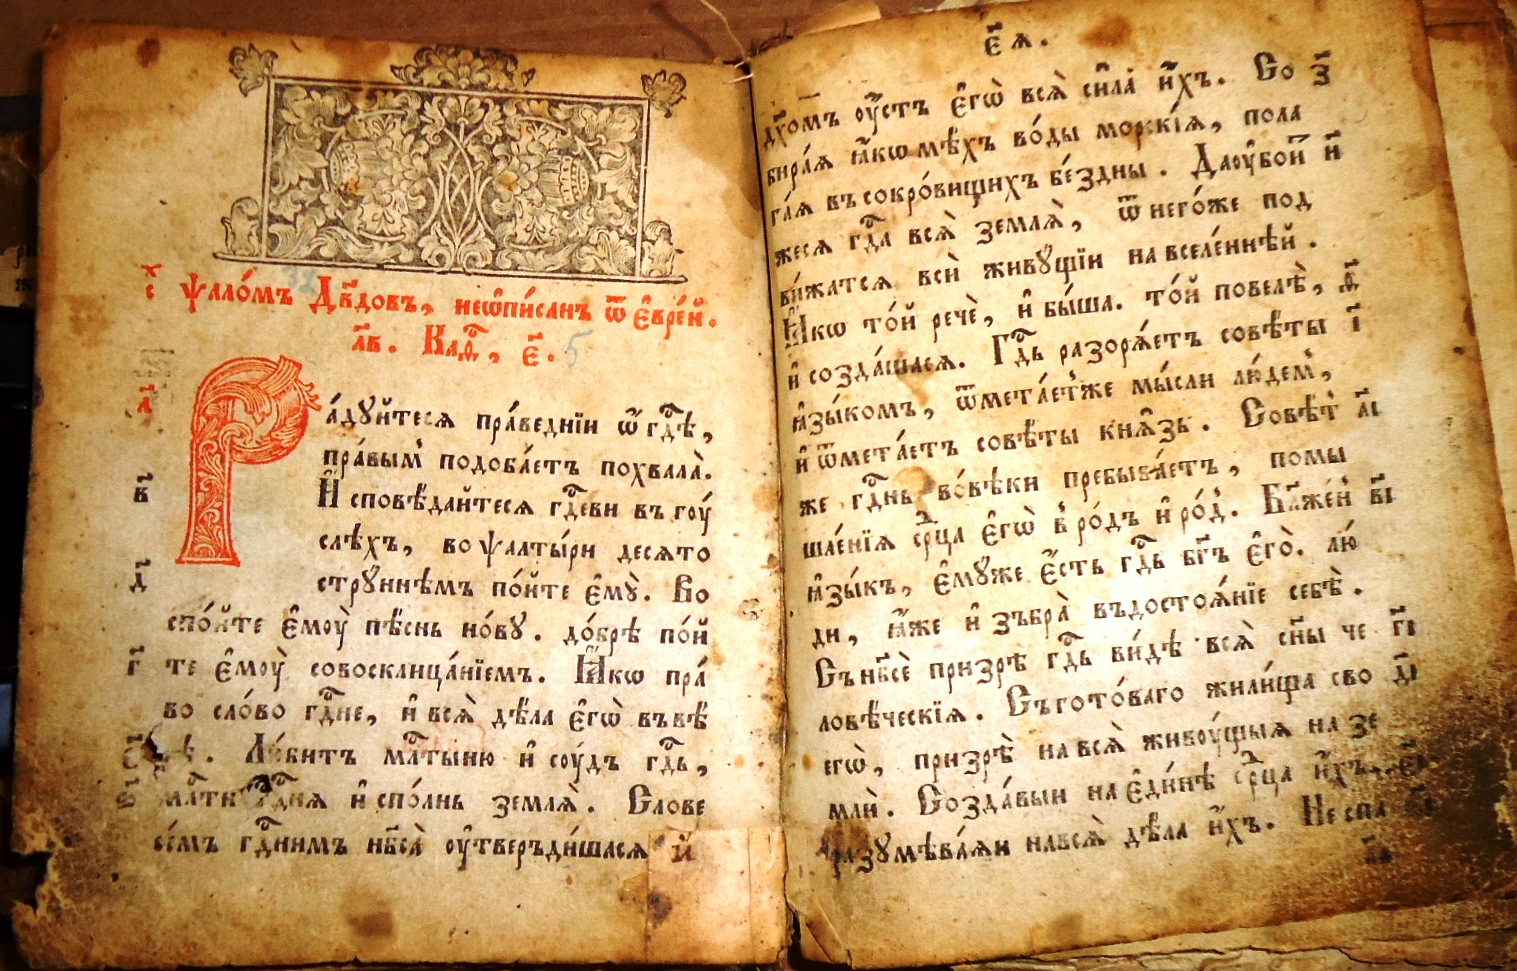 Ѱало́мъ Дв҃довъ, неѡпи́санъ ѿ є҆вре́й.
л҃в. Каѳ, є҃.
Ра́дуйтеся пра́веднїи ѡ҆ гд҇ѣ,
пра́вым подоба́етъ похвала̀.
И҆сповѣ́дайтеся гд҇еви въ гоу́
слѣхъ, во ѱалты́ри десято
стру́ннѣмъ по́йте є҆мꙋ̀. Во
спо́йте є҆моу̀ пѣ́снь но́ву. до́брѣ по́й
те є҆моу̀ совосклица́нїемъ. Ꙗ҆кѡ пра́
во сло́во гд҇не, и҆ вся̀ дѣ́ла є҆гѡ̀ въ вѣ́
Лю́битъ мл҇тыню и҆ соу́дъ гд҇ь,
мл҇ти гд҇ня и҆спо́лнь земля̀. Слове
се́мъ гд҇нимъ нб҃са̀ оу҆тверъди́шася и҆
є҃ѧ.
дх҃омъ оу҆стъ є҆гѡ̀ вся̀ си́ла и҆́хъ. Со
бира́я ꙗ҆́кѡ мѣ́хъ во́ды морскі́я, пола
га́я въ сокро́вищихъ бе́здны. Да оу҆бои
жеся гд҇а вся̀ земля̀, ѿ него́же под
ви́жатся всѝ живу́щїи на вселе́ннѣй.
Ꙗ҆кѡ то́й речѐ, и҆ бы́ша. то́й повелѣ̀,
и҆ созда́шася. Гд҇ь разоря́етъ совѣ́ты
ꙗ҆зы́комъ, ѿмета́етже мы́сли лю́дем,
и҆ ѿмета́етъ совѣ́ты кня̑зь. Совѣ́т
же гд҇нь во́вѣки пребыва́етъ, помы
шле́нїя ср҃ца є҆гѡ̀ в ро́дъ и҆ ро́д. Бл҃же́н
ꙗ҆зы́къ, є҆му́же є҆́сть гд҇ь бг҃ъ є҆гѡ̀. лю́
ди, ꙗ҆̀же и҆збра̀ въ достоя́нїе себѣ̀.
Съ нб҃сѐ призрѣ̀ гд҇ь ви́дѣ вся̀ сн҃ы че
ловѣ́ческїя. Съ гото́ваго жили́ща сво
єгѡ̀, призрѣ̀ на вся̀ живоу́щыя на зе
млѝ. Созда́выи на є҆ди́нѣ ср҃ца и҆́хъ,
разумѣва́яи на вся̀ дѣ́ла и҆́хъ. Не спа